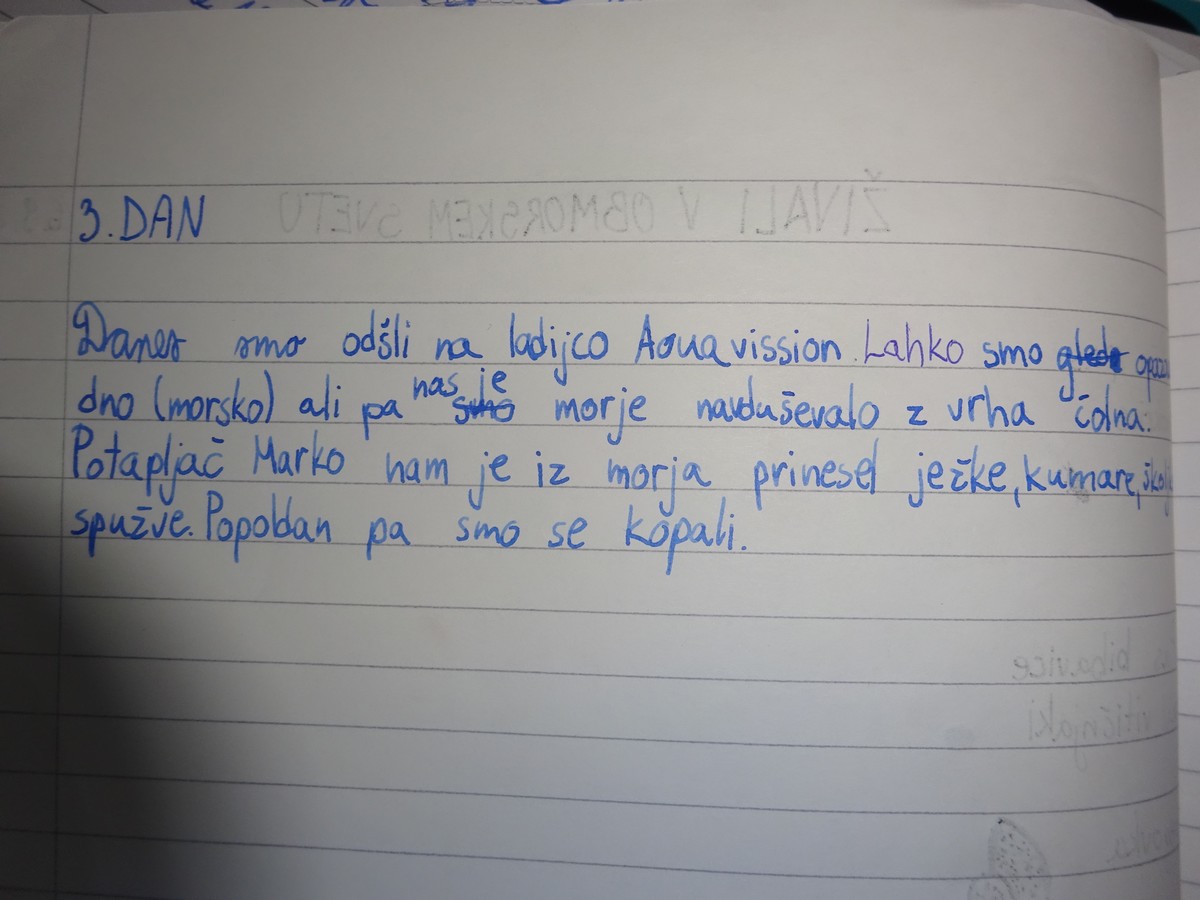 3. DAN
Danes smo odšli na ladijco Aquavission. Lahko smo
dno (morsko) ali pa nas je morje navduševalo z vrha čolna.
Potapljač Marko nam je iz morja prinesel ježke, kumare,
spužve. Popoldan pa smo se kopali.
ŽIVALI V OBMORSKEM SVETU